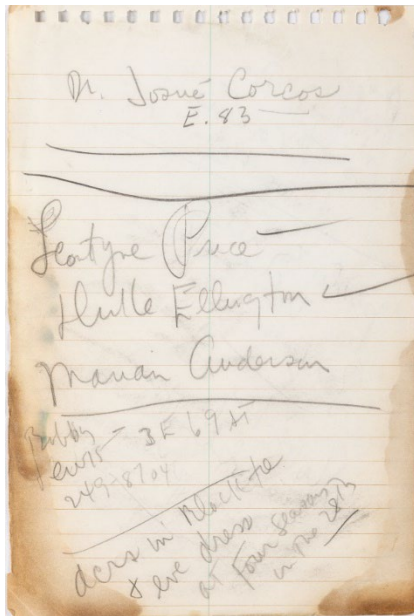 Dr. Josué Corcos
E. 83
Leontyne Price
Duke Ellington
Marian Anderson
Bobby
Lewis - 3 E 69 St
249-8704
in Black tie
& eve dress
at Four Seasons
in the 28th